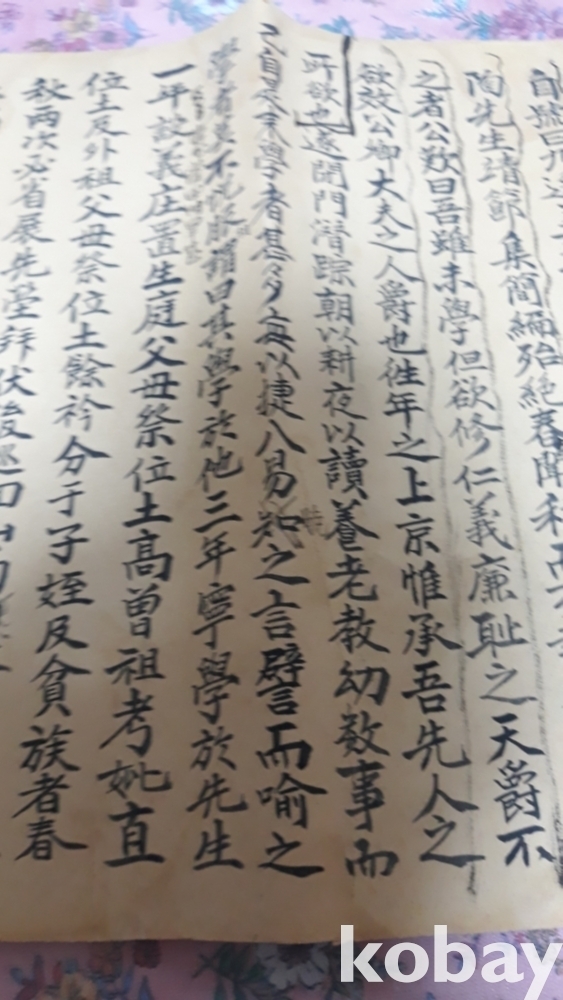 自號曰
陶先生靖節集簡編殆絶春聞利而
之者公歎曰吾雖未學但欲修仁義廉恥之天爵不
欲效公卿大夫之人爵也往年之上京惟承吾先人之
所欲也遂閉門潛踪朝以耕夜以讀養老教幼敬事而
已自是来學者甚多 每以捷入易知之言譬而喻之
學者莫不悅服稱曰其學於他三年寧學於先生
一年設義庄置生庭父母祭位土高曾祖考妣直
位土及外祖父母祭位土餘衿分于子姪及貧族者春
秋兩次必省展先塋拜伏後
kobay